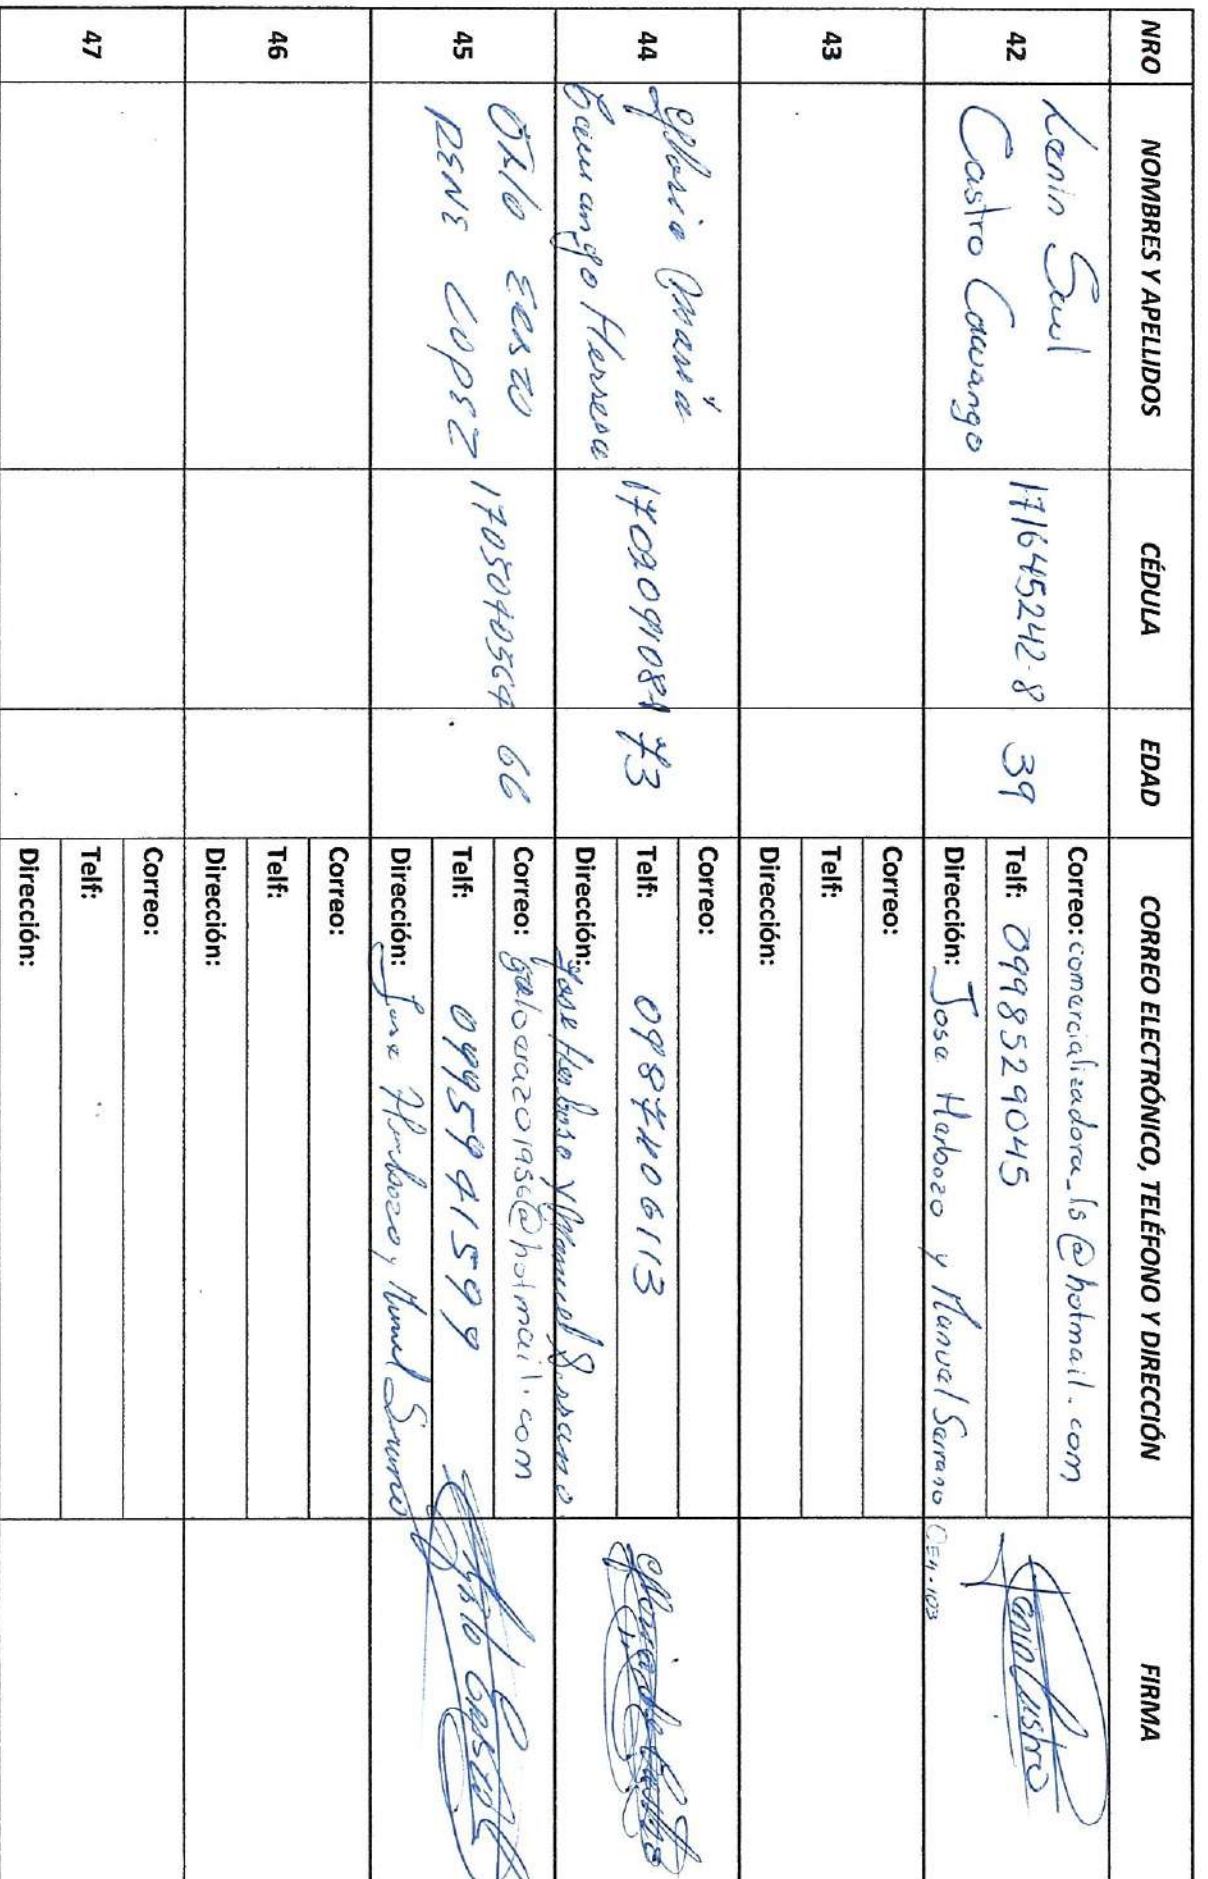 NRO NOMBRES Y APELLIDOS CÉDULA EDAD CORREO ELECTRÓNICO, TELÉFONO Y DIRECCIÓN FIRMA
42
Lenin Saul
Castro Cawango
171645242-8
39
Correo: comercializadora_ls@hotmail.com
Telf: 0998529045
Dirección: Jose Herbozo y Manuel Serrano OE4-103
Lenin Castro
43
Correo:
Telf:
Dirección:
44
Gloria María
Herrera
73
Correo:
Telf: 0987406113
Dirección: Jose Herboso y Manuel Serrano
45
RENE LOPEZ
66
Correo: galoerazo1956@hotmail.com
Telf: 0995941599
Dirección: Jose Herbozo y Manuel Serrano
46
Correo:
Telf:
Dirección:
47
Correo:
Telf:
Dirección: